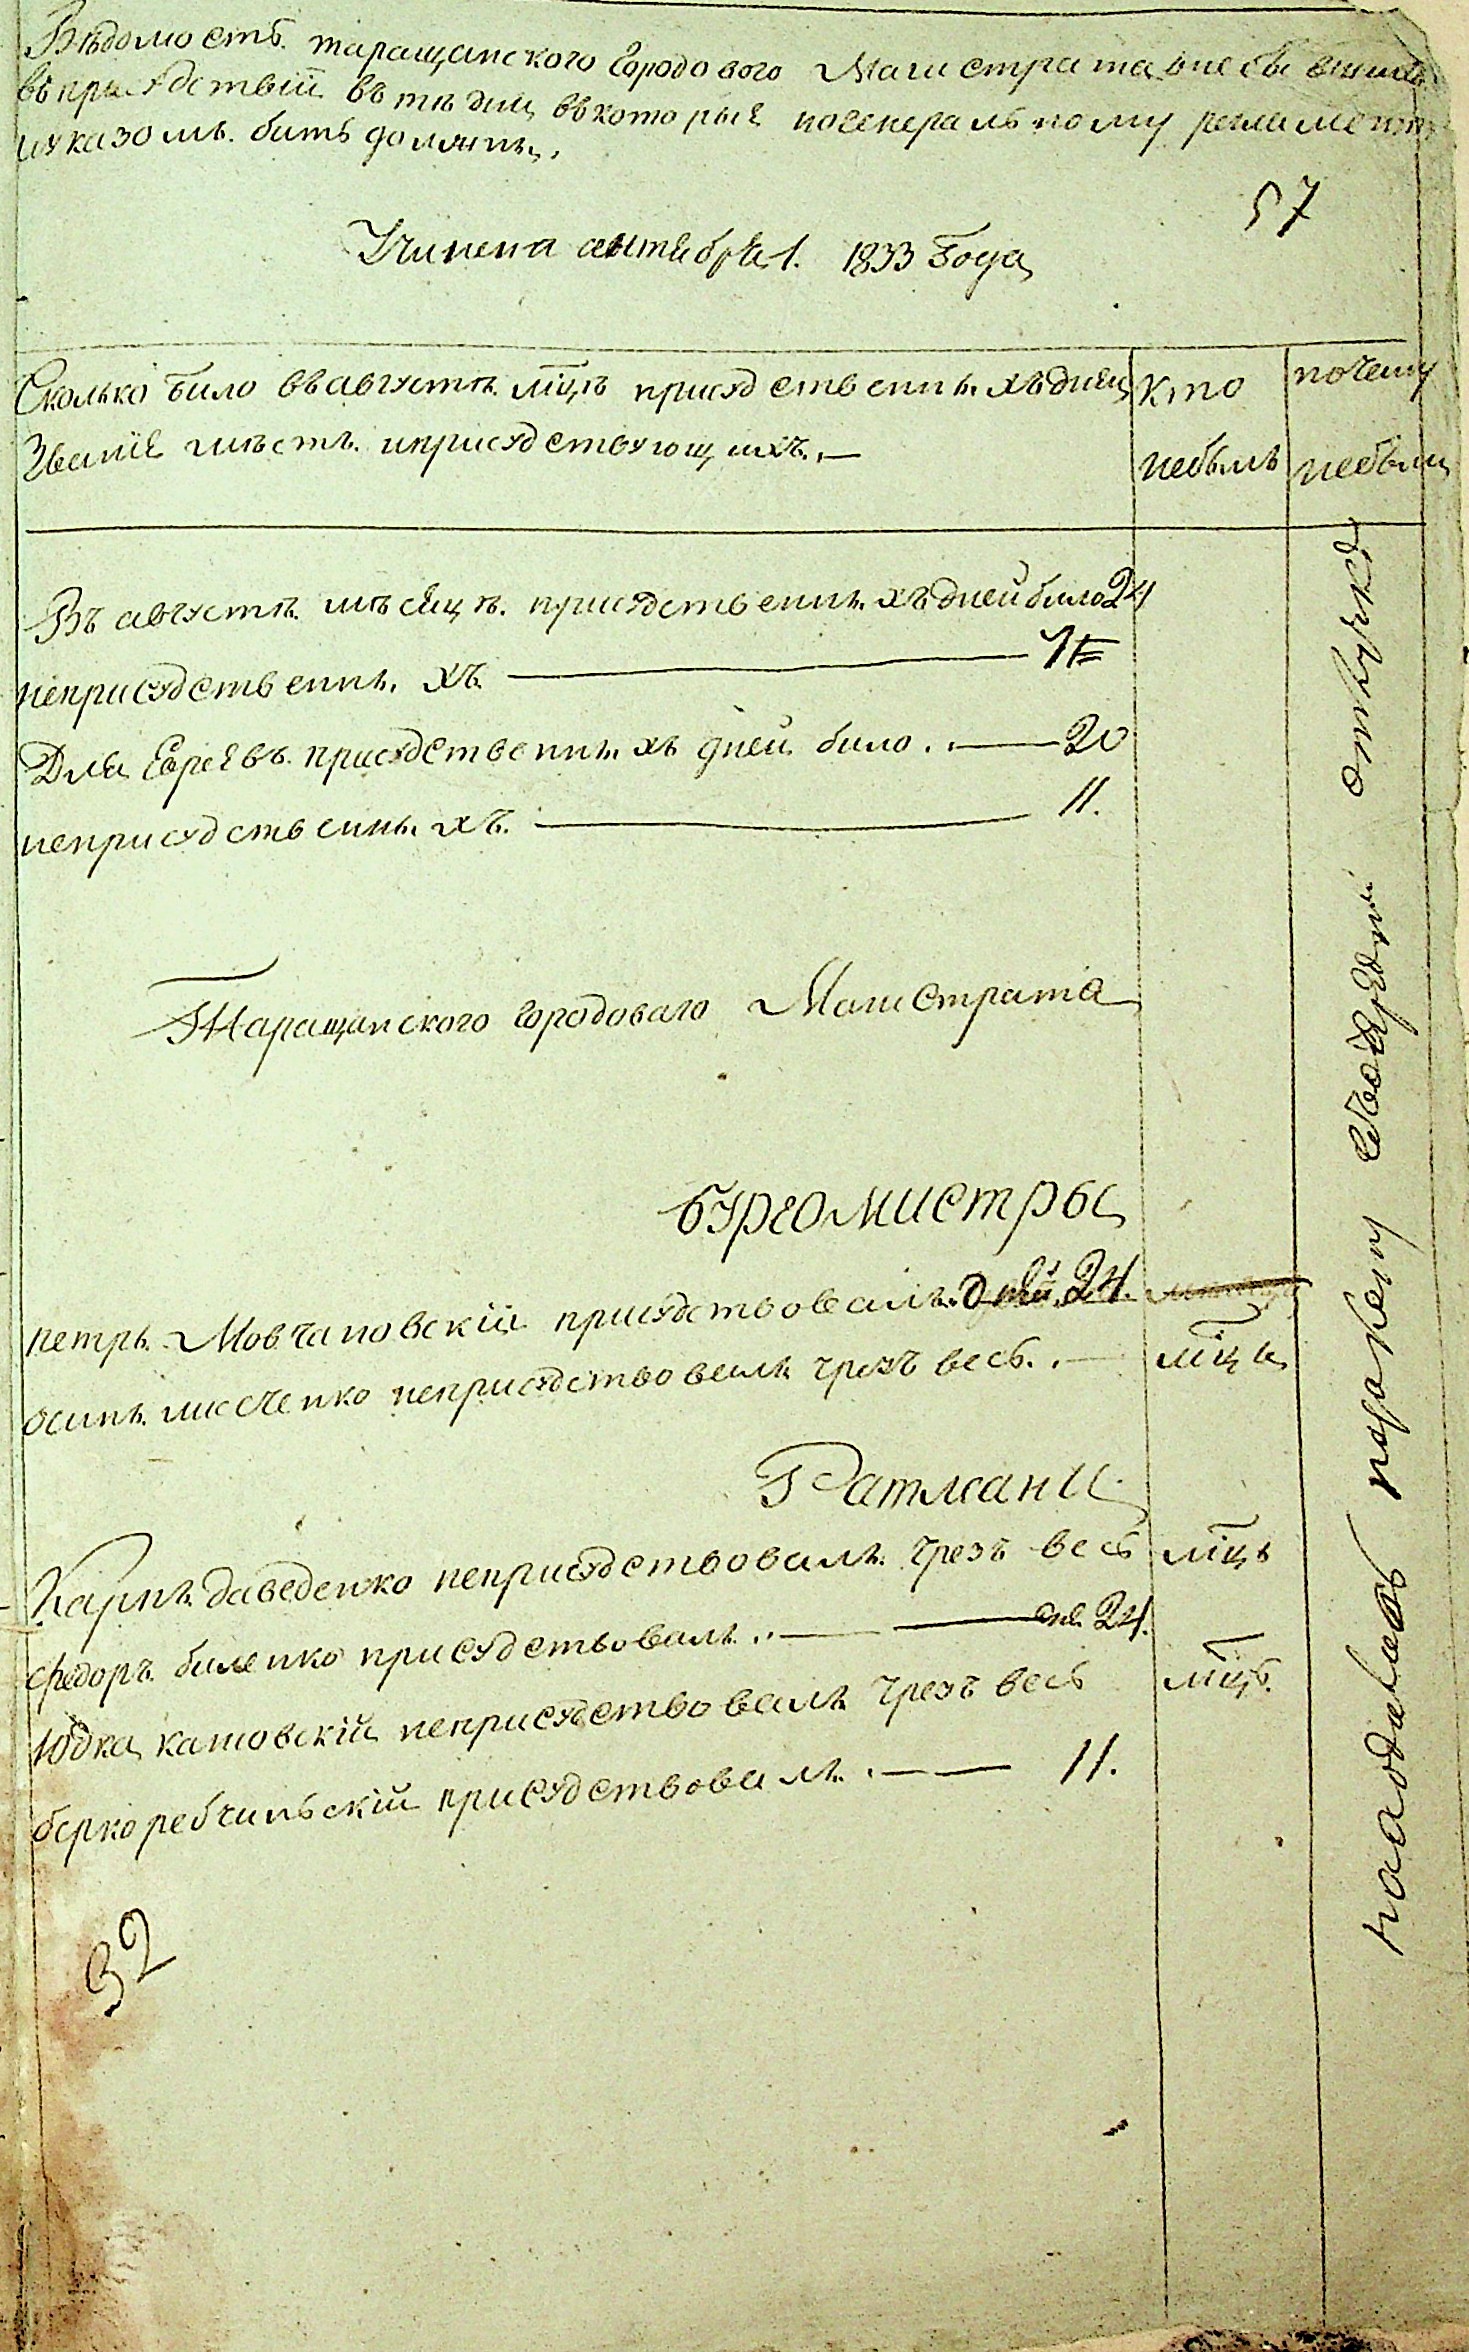 Вѣдомость таращанского Городового Магистрата онебывшихъ
въприсудствіи въ тѣ дни вкоторые погенеральному регламенту
иуказомъ бить должны,
57
Учинена сентября 1. 1833 Года
Сколько било въавгустѣ мцѣ присудственныхъдней
Званіе мѣстъ иприсудствующихъ.
Кто
небылъ
почему
небылъ
Въ августѣ мѣсяцѣ присудственныхъдней било 24
неприсудственныхъ 7
Для Евреевъ присудственныхъ дней било. 20
неприсудственныхъ. 11.
Таращанского Городоваго Магистрата
Бургомистры
петръ Мовчановскій присудствовалъ дней 24.
осипъ неприсудствовалъ чрезъ весь. мцъ
Ратмани
Карпъ даведенко неприсудствовалъ чрезъ весь мцъ
федоръ биленко присудствовалъ. дне 24.
Юдка катовскій неприсудствовалъ чрезъ весь мцъ.
берко ребчинскій присудствовалъ. 11.
находилось поданему отлучкѣ
32